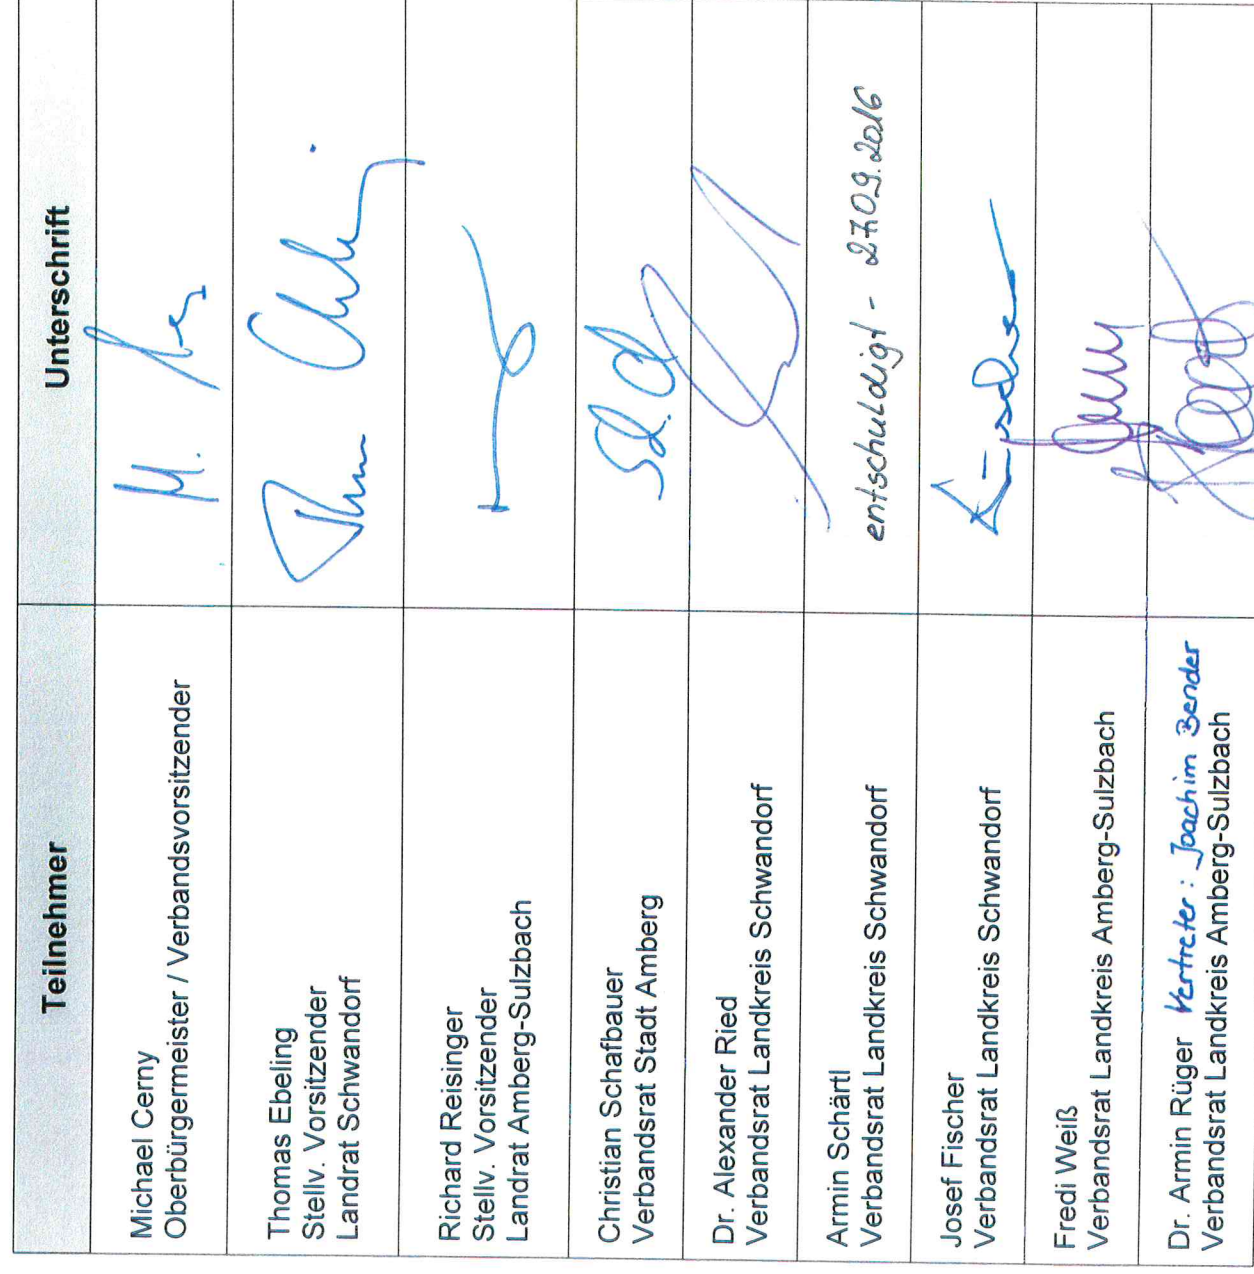 Teilnehmer
Unterschrift
Michael Cerny
Oberbürgermeister / Verbandsvorsitzender
Thomas Ebeling
Stellv. Vorsitzender
Landrat Schwandorf
Richard Reisinger
Stellv. Vorsitzender
Landrat Amberg-Sulzbach
Christian Schafbauer
Verbandsrat Stadt Amberg
Dr. Alexander Ried
Verbandsrat Landkreis Schwandorf
Armin Schärtl
Verbandsrat Landkreis Schwandorf
entschuldigt - 27.09.2016
Josef Fischer
Verbandsrat Landkreis Schwandorf
Fredi Weiß
Verbandsrat Landkreis Amberg-Sulzbach
Dr. Armin Rüger Vertreter: Joachim Bender
Verbandsrat Landkreis Amberg-Sulzbach